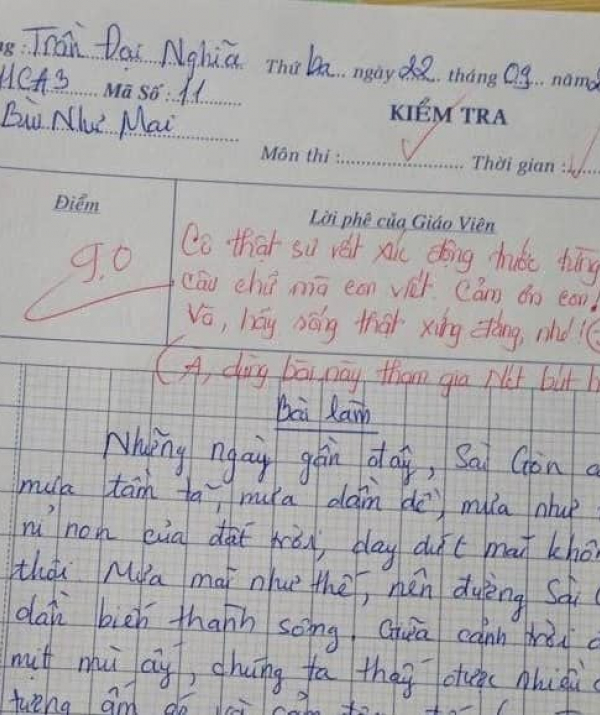 Trần Đại Nghĩa Thứ ba ngày 22 tháng 09 năm
11CA3 Mã Số: 11
KIỂM TRA
Bùi Như Mai
Môn thi: Thời gian:
Điểm
Lời phê của Giáo Viên
9.0
Cô thật sự rất xúc động trước từng
câu chữ mà con viết. Cảm ơn con!
Và, hãy sống thật xứng đáng, nhé!
(À, dùng bài này tham gia Nét bút
Bài làm
Những ngày gần đây, Sài Gòn
mưa tầm tã, mưa dầm dề, mưa như
rỉ non của đất trời, day dứt mãi khôn
thôi. Mưa mãi như thế, nên đường Sài
dần biến thành sông. Giữa cảnh trời
mịt mù ấy, chúng ta thấy được nhiều
tượng ấm